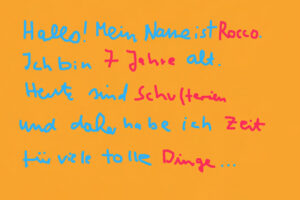 Hallo! Mein Name ist Rocco.
Ich bin 7 Jahre alt.
Heute sind Schulferien
und daher habe ich Zeit
für viele tolle Dinge...